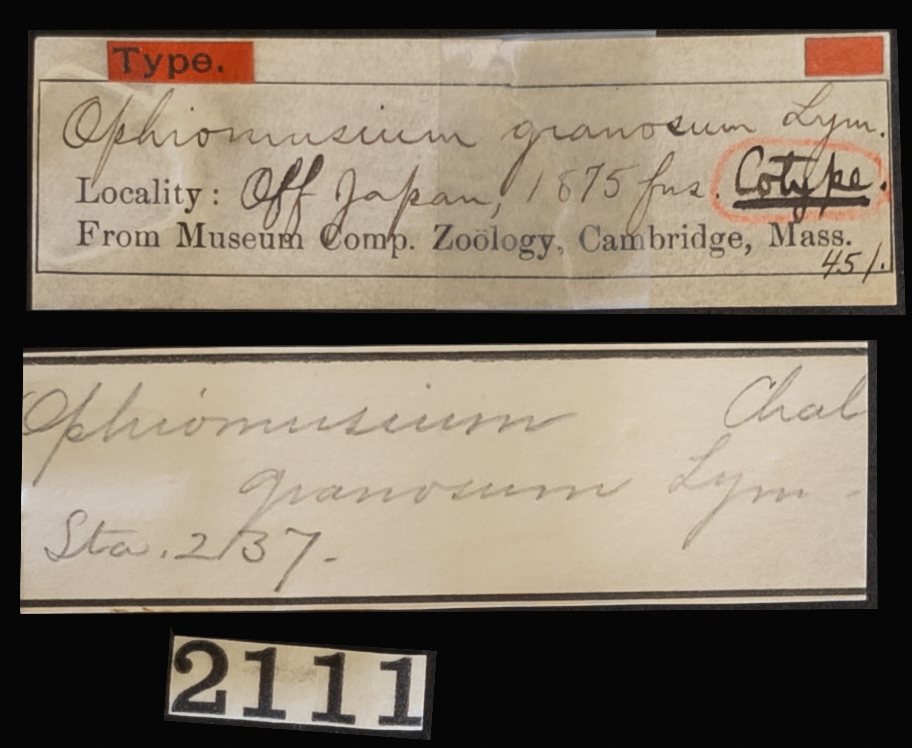 Type.
Ophiomusium granosum Lym.
Locality: Off Japan, 1875 fms. Cotype.
From Museum Comp. Zoölogy, Cambridge, Mass.
451.
Ophiomusium Chal
granosum Lym.
Sta. 237.
2111